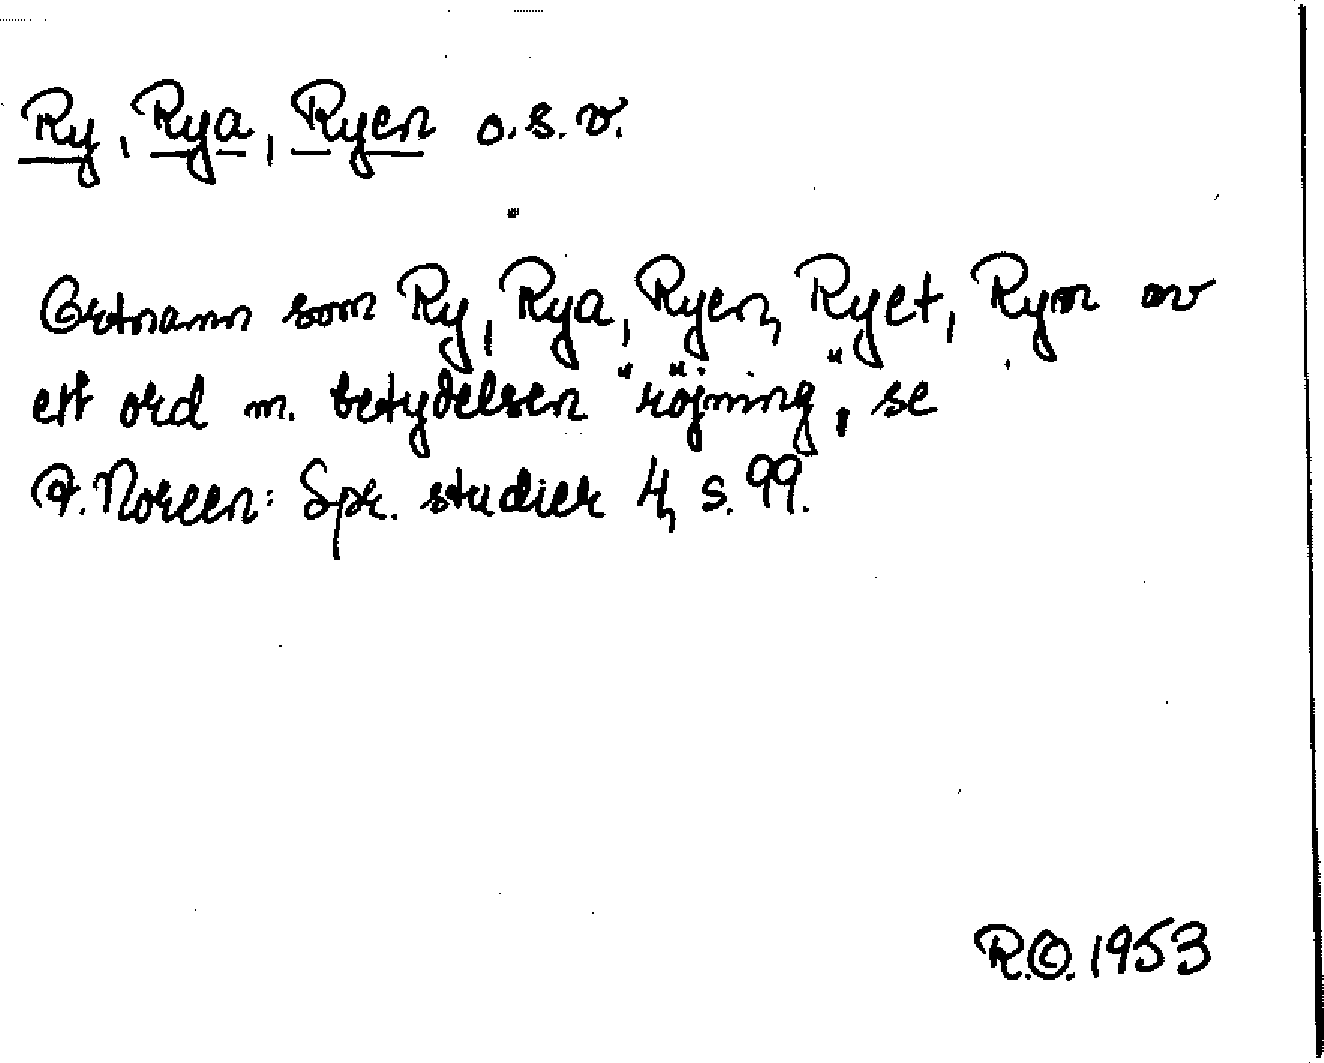 Ry, Rya, Ryen o.s.v.
Ortnamn som Ry, Rya, Ryen, Ryet, Rym av
ett ord m. betydelsen "röjning", se
A. Noreen: Spr. studier 4, s. 99.
R.O. 1953